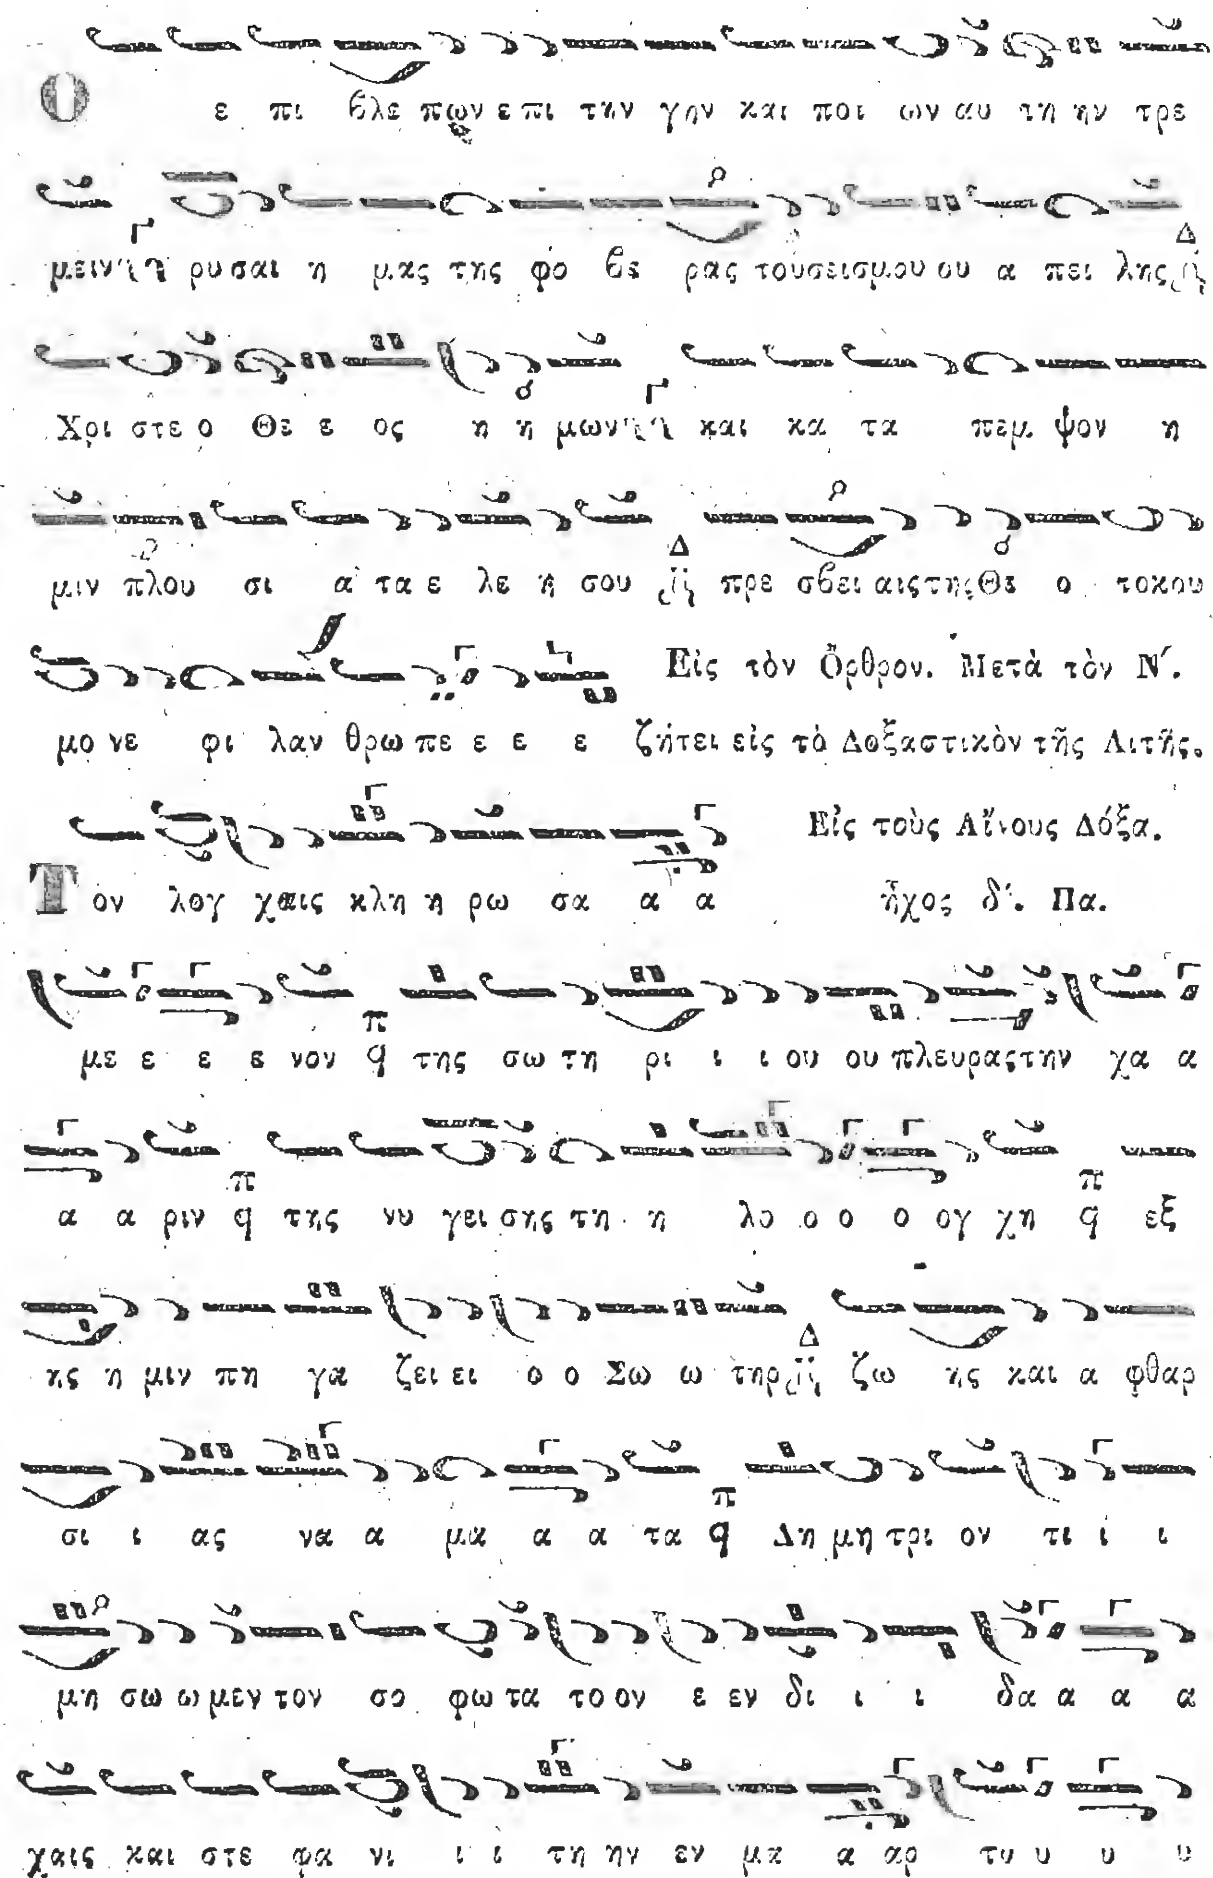 Ο ε πι βλε πων ε πι την γην και ποι ων αυ τη ην τρε
μειν ρυ σαι η μας της φο βε ρας του σεισμου ου α πει λης
Χρι στε ο Θε ε ος η η μων και κα τα πεμ ψον η
μιν πλου σι α τα ε λε η σου πρε σβει αις της Θε ο τοκου
Εἰς τὸν Ὄρθρον. Μετὰ τὸν Ν΄.
μο νε φι λαν θρω πε ε ε ε ζήτει εἰς τὸ Δοξαστικὸν τῆς Λιτῆς.
Εἰς τοὺς Αἴνους Δόξα.
Τον λογ χαις κλη η ρω σα α α ἦχος δ΄. Πα.
με ε ε ε νον της σω τη ρι ι ι ου ου πλευρας την χα α
α α ριν της νυ γει σης τη η λο ο ο ο ογ χη εξ
ης η μιν πη γα ζει ει ο ο Σω ω τηρ ζω ης και α φθαρ
σι ι ας να α μα α α τα Δη μη τρι ον τι ι ι
μη σω ω μεν τον σο φω τα το ον ε εν δι ι ι δα α α α
χαις και στε φα νι ι ι τη ην εν μα α αρ τυ υ υ υ